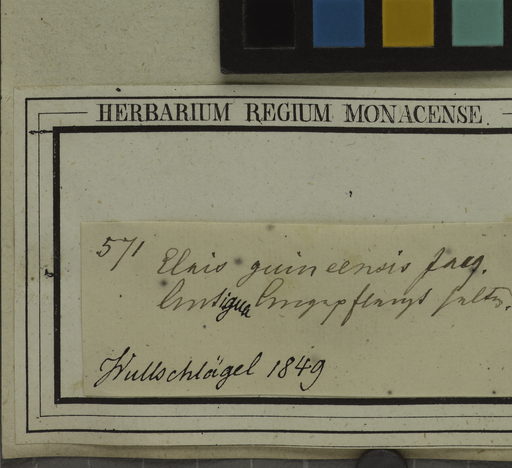 HERBARIUM REGIUM MONACENSE
571 Elais guineensis Jacq.
Antigua Angepflanzt selten.
Wullschlägel 1849